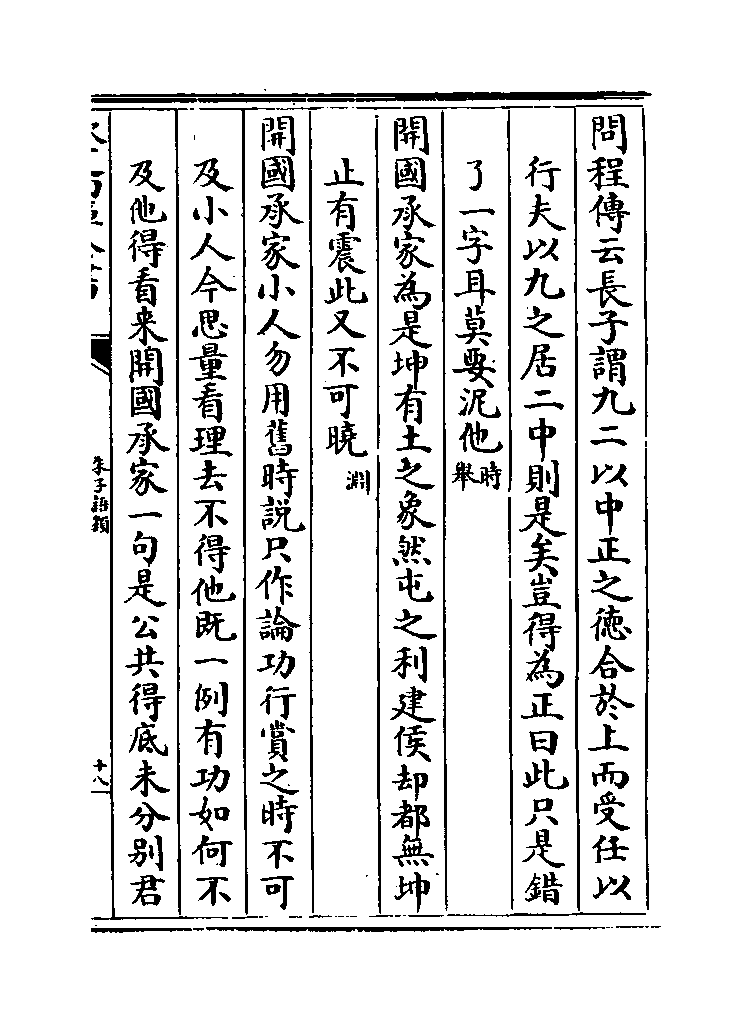 問程傳云長子謂九二以中正之徳合於上而受任以
行夫以九之居二中則是矣豈得為正曰此只是錯
了一字耳莫要泥他時舉
開國承家為是坤有土之象然屯之利建侯却都無坤
止有震此又不可曉淵
開國承家小人勿用舊時説只作論功行賞之時不可
及小人今思量看理去不得他既一例有功如何不
及他得看来開國承家一句是公共得底未分别君
朱子語類
十八